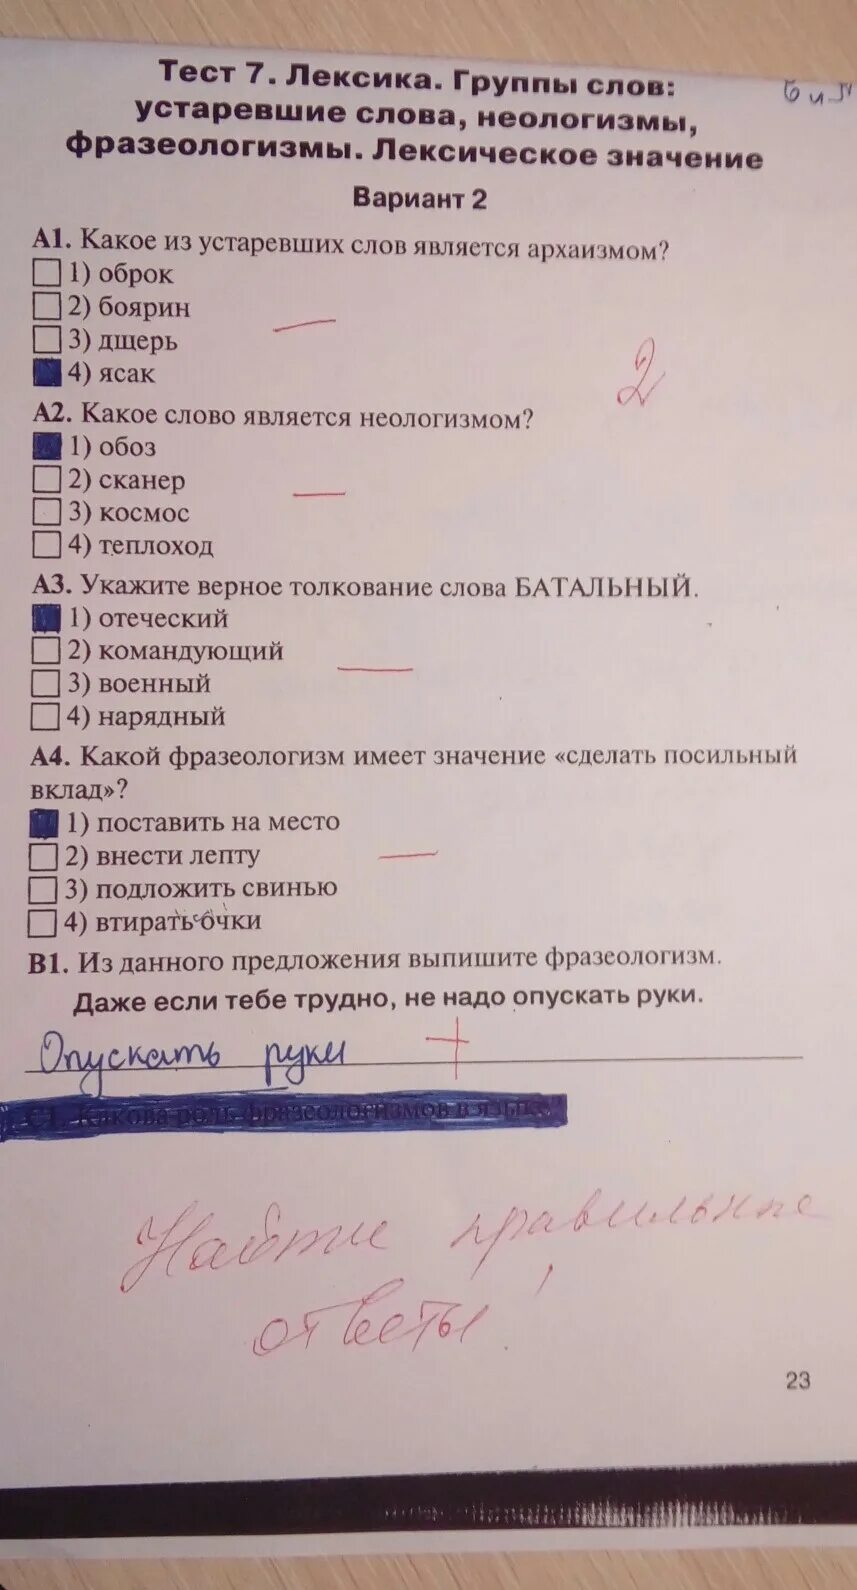 Тест 7. Лексика. Группы слов:
устаревшие слова, неологизмы,
фразеологизмы. Лексическое значение
Вариант 2
А1. Какое из устаревших слов является архаизмом?
1) оброк
2) боярин
3) дщерь
4) ясак
2
А2. Какое слово является неологизмом?
1) обоз
2) сканер
3) космос
4) теплоход
А3. Укажите верное толкование слова БАТАЛЬНЫЙ.
1) отеческий
2) командующий
3) военный
4) нарядный
А4. Какой фразеологизм имеет значение «сделать посильный
вклад»?
1) поставить на место
2) внести лепту
3) подложить свинью
4) втирать очки
В1. Из данного предложения выпишите фразеологизм.
Даже если тебе трудно, не надо опускать руки.
Опускать руки +
С1. Какова роль фразеологизмов в языке?
Найти правильные
ответы!
23